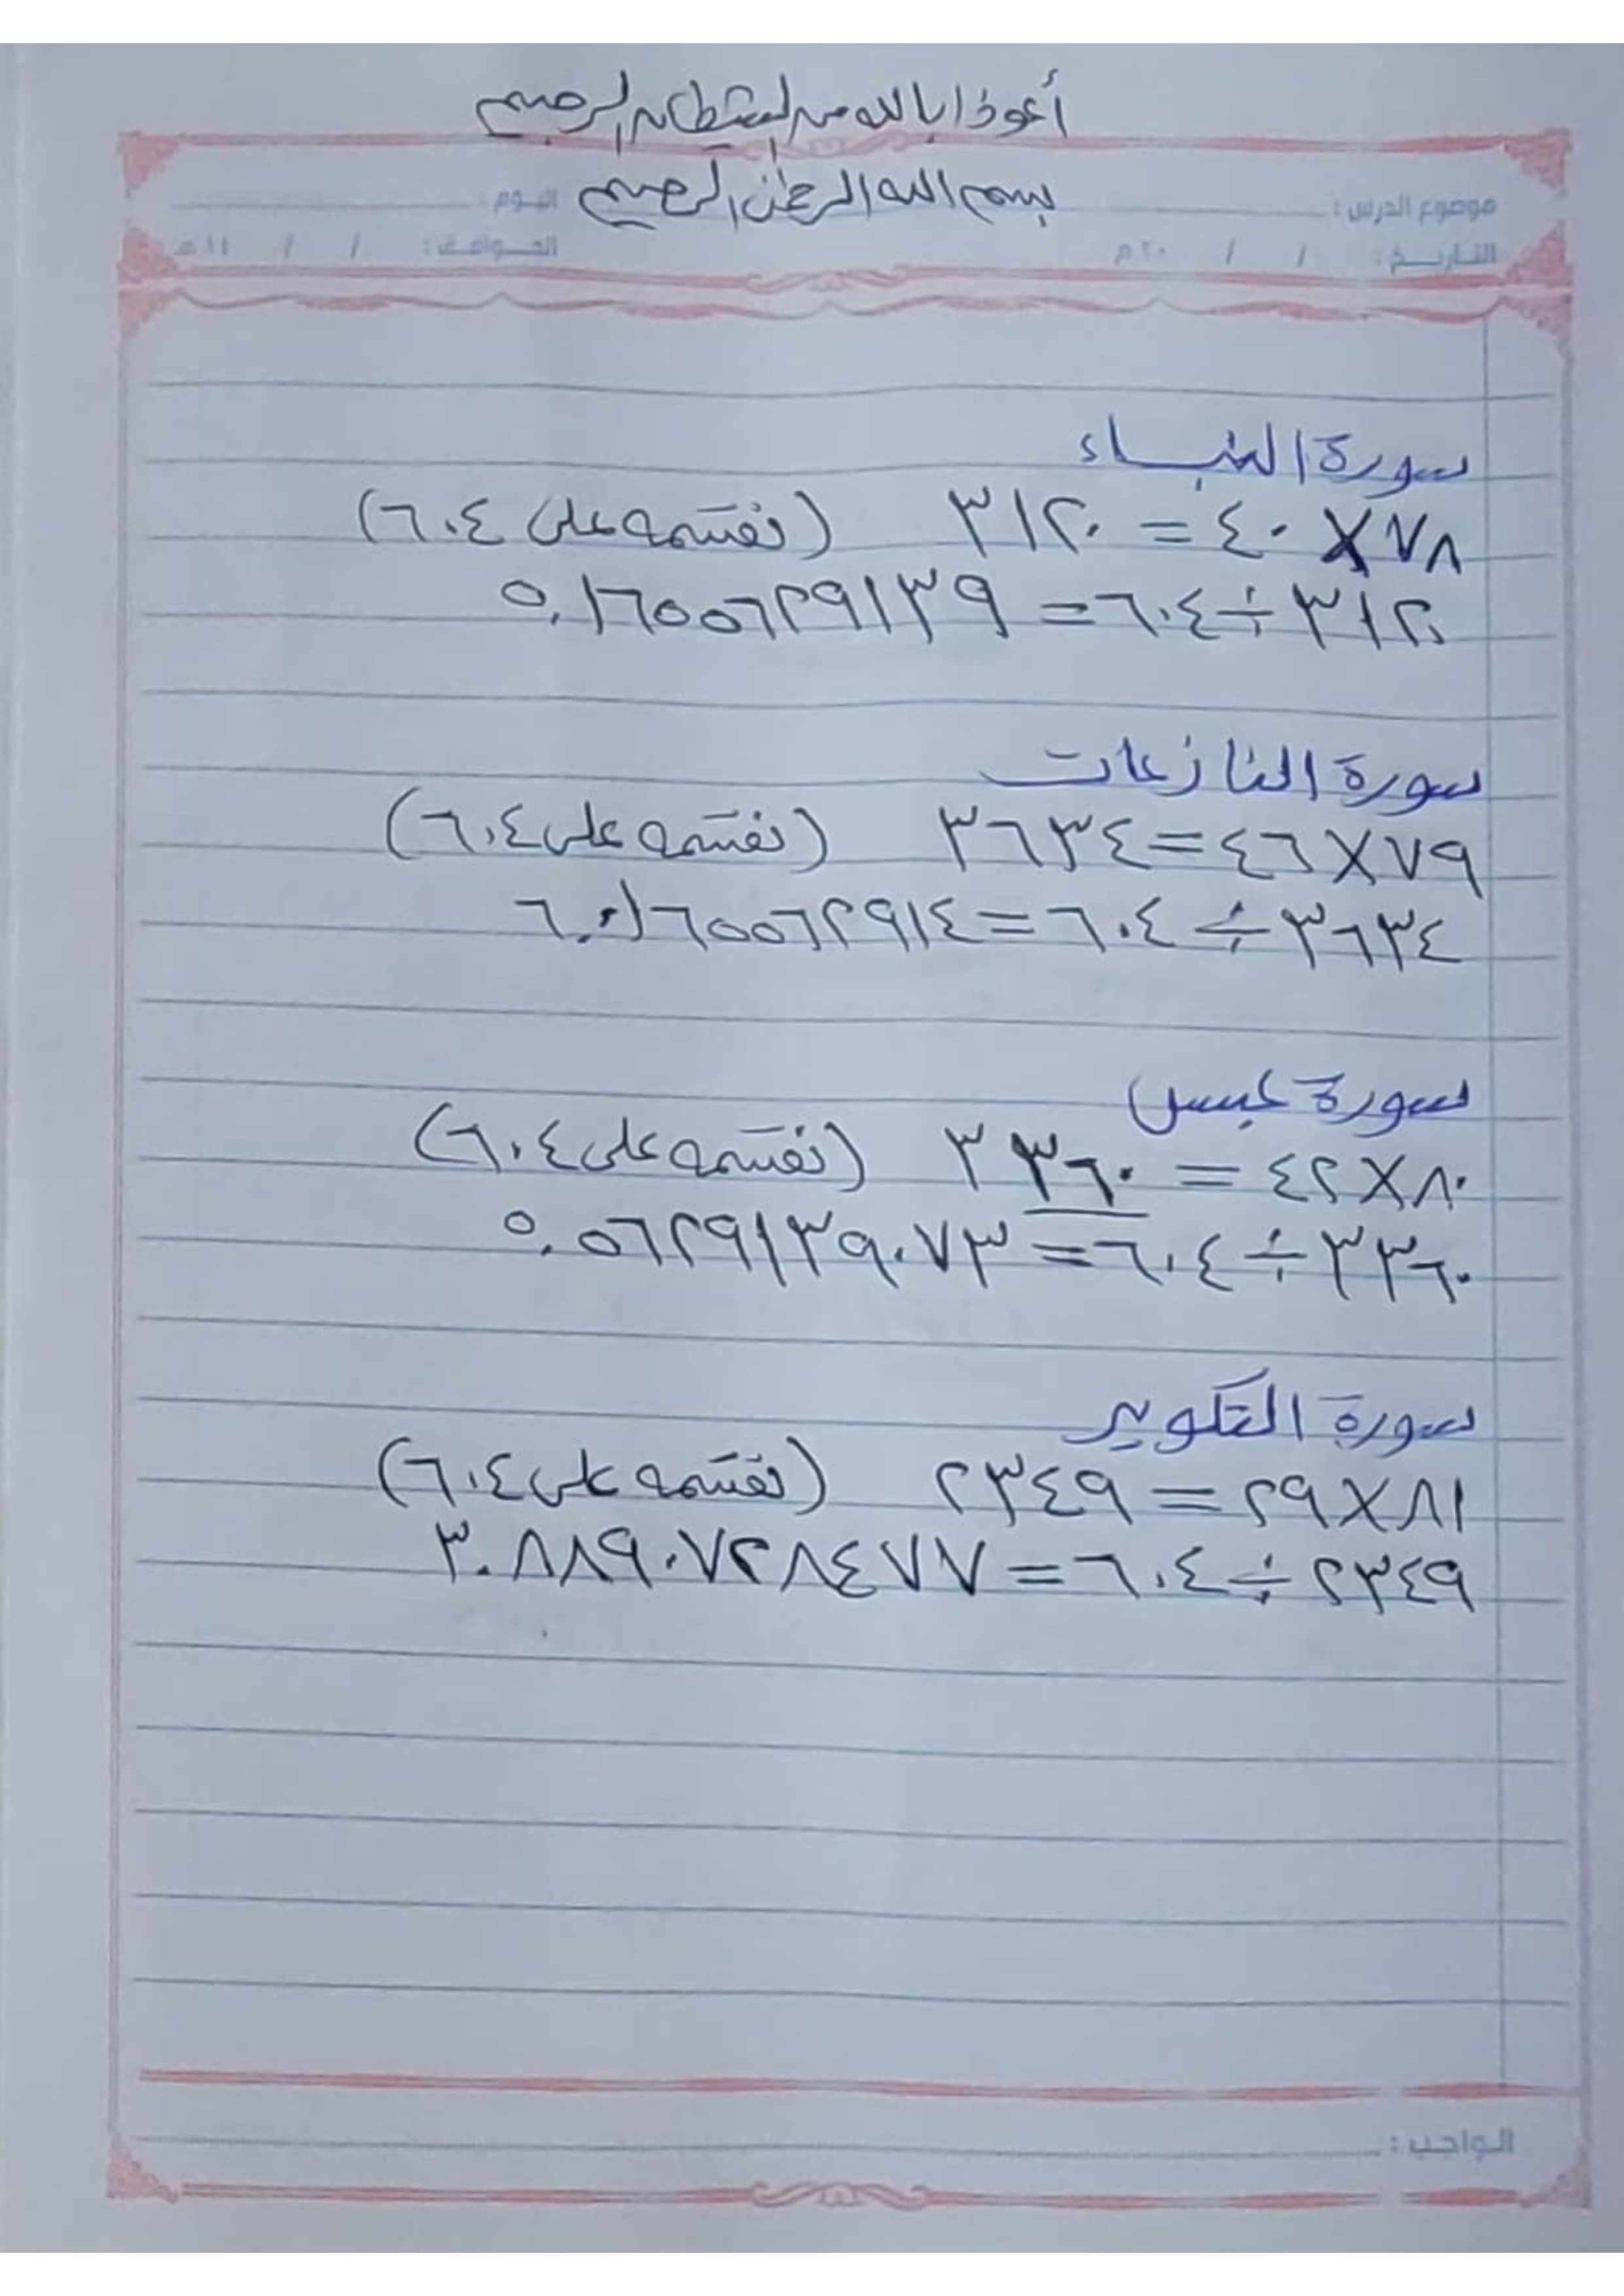 أعوذ بالله من الشيطان الرجيم
بسم الله الرحمن الرحيم
موضوع الدرس : اليوم :
التاريخ : / / ٢٠ م الموافق : / / ١٤ هـ
سورة النبـاء
٧٨ × ٤٠ = ٣١٢٠ (نقسمه على ٦٠٤)
٣١٢٠ ÷ ٦٠٤ = ٥.١٦٥٥٦٢٩١٣٩
سورة النازعات
٧٩ × ٤٦ = ٣٦٣٤ (نقسمه على ٦٠٤)
٣٦٣٤ ÷ ٦٠٤ = ٦.٠١٦٥٥٦٢٩١٤
سورة عبس
٨٠ × ٤٢ = ٣٣٦٠ (نقسمه على ٦٠٤)
٣٣٦٠ ÷ ٦٠٤ = ٥.٥٦٢٩١٣٩٠٧٣
سورة التكوير
٨١ × ٢٩ = ٢٣٤٩ (نقسمه على ٦٠٤)
٢٣٤٩ ÷ ٦٠٤ = ٣.٨٨٩٠٧٢٨٤٧٧
الواجب :